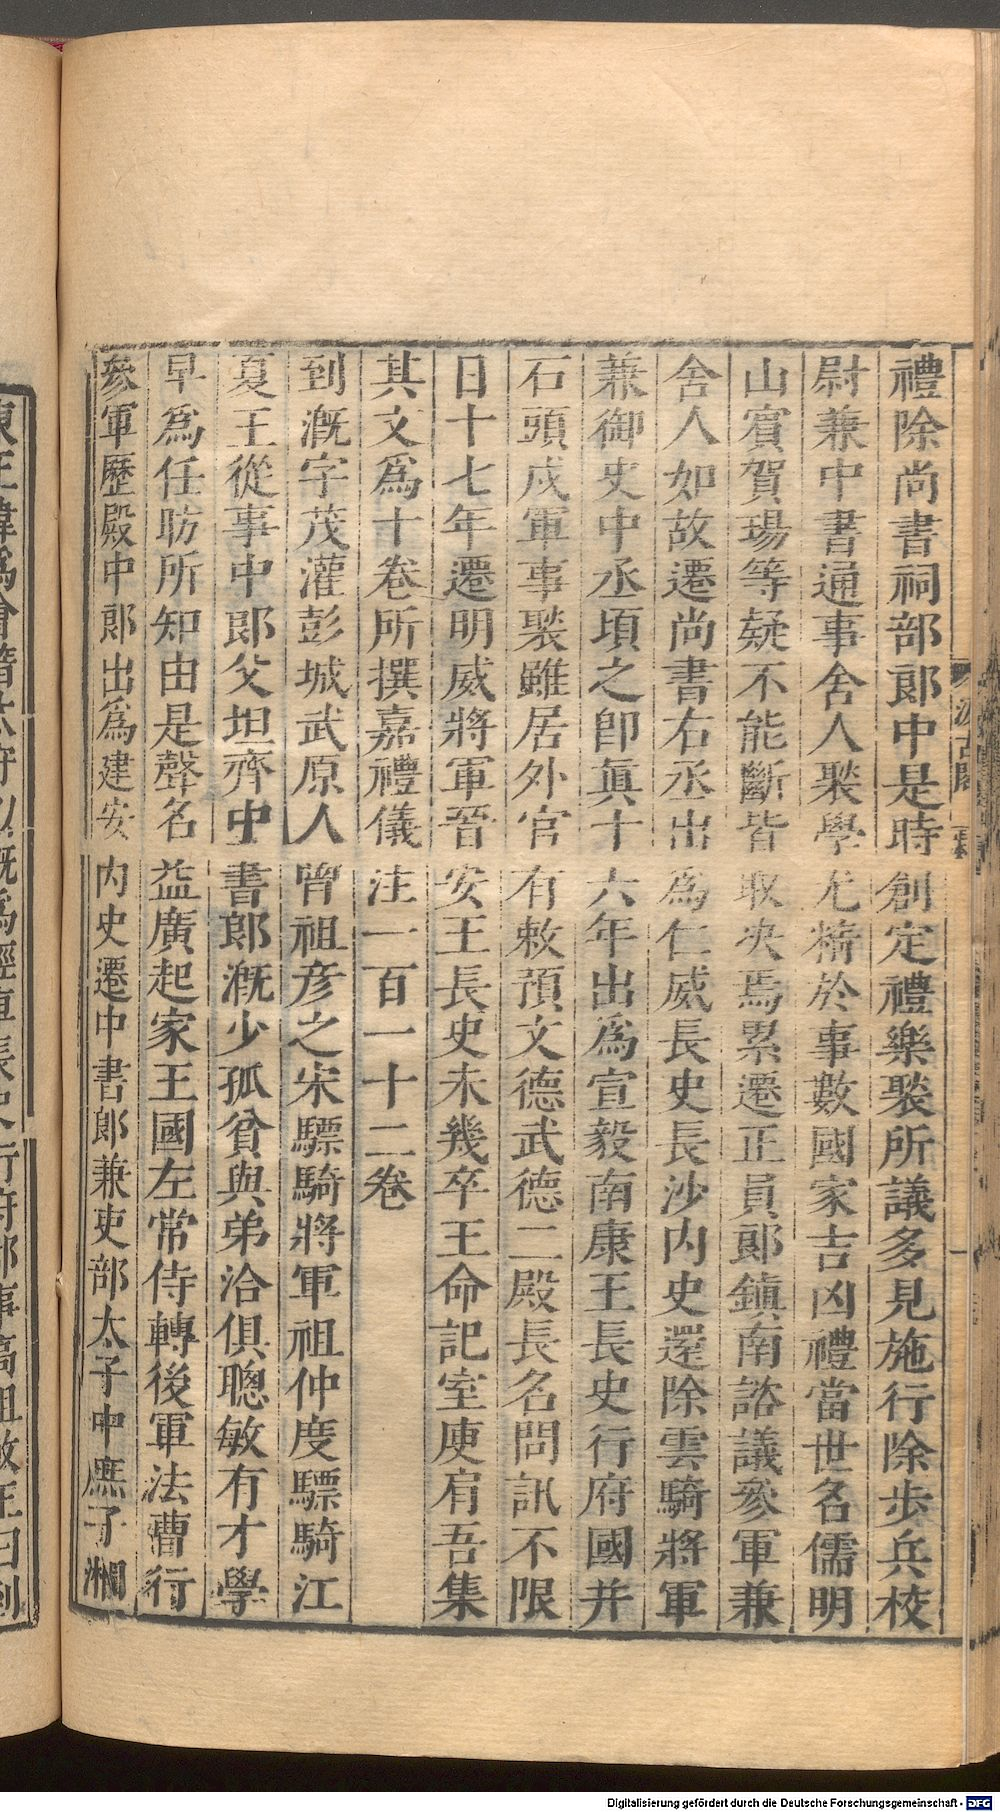 禮除尚書祠部郞中是時創定禮樂褧所議多見施行除步兵校
尉兼中書通事舍人褧學尤精於事數國家吉凶禮當世名儒明
山賓賀瑒等疑不能斷皆取決焉累遷正員郞鎮南諮議參軍兼
舍人如故遷尚書右丞出為仁威長史長沙內史還除雲騎將軍
兼御史中丞頃之卽眞十六年出為宣毅南康王長史行府國并
石頭戍軍事褧雖居外官有敕預文德武德二殿長名問訊不限
日十七年遷明威將軍晉安王長史未幾卒王命記室庾肩吾集
其文爲十卷所撰嘉禮儀注一百一十二卷
到漑字茂灌彭城武原人曾祖彥之宋驃騎將軍祖仲度驃騎江
夏王從事中郞父坦齊中書郞漑少孤貧與弟洽俱聰敏有才學
早爲任昉所知由是聲名益廣起家王國左常侍轉後軍法曹行
參軍歷殿中郞出爲建安內史遷中書郞兼吏部太子中庶子湘
東王繹爲會稽太守以漑爲輕車長史行府郡事高祖敕王曰到
Digitalisierung gefördert durch die Deutsche Forschungsgemeinschaft - DFG